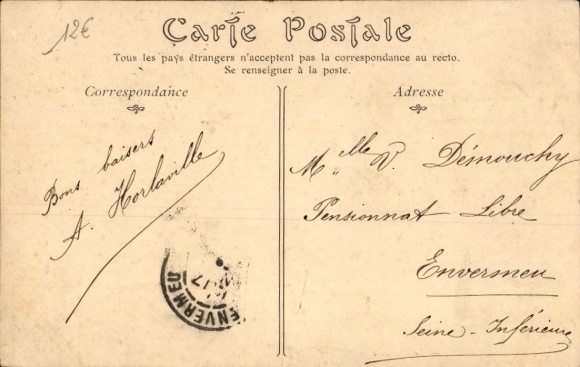 12€
Carte Postale
Tous les pays étrangers n'acceptent pas la correspondance au recto.
Se renseigner à la poste.
Correspondance
Bons baisers
A. Horlaville
ENVERMEU
Adresse
Melle V. Démouchy
Pensionnat Libre
Envermeu
Seine-Inférieure